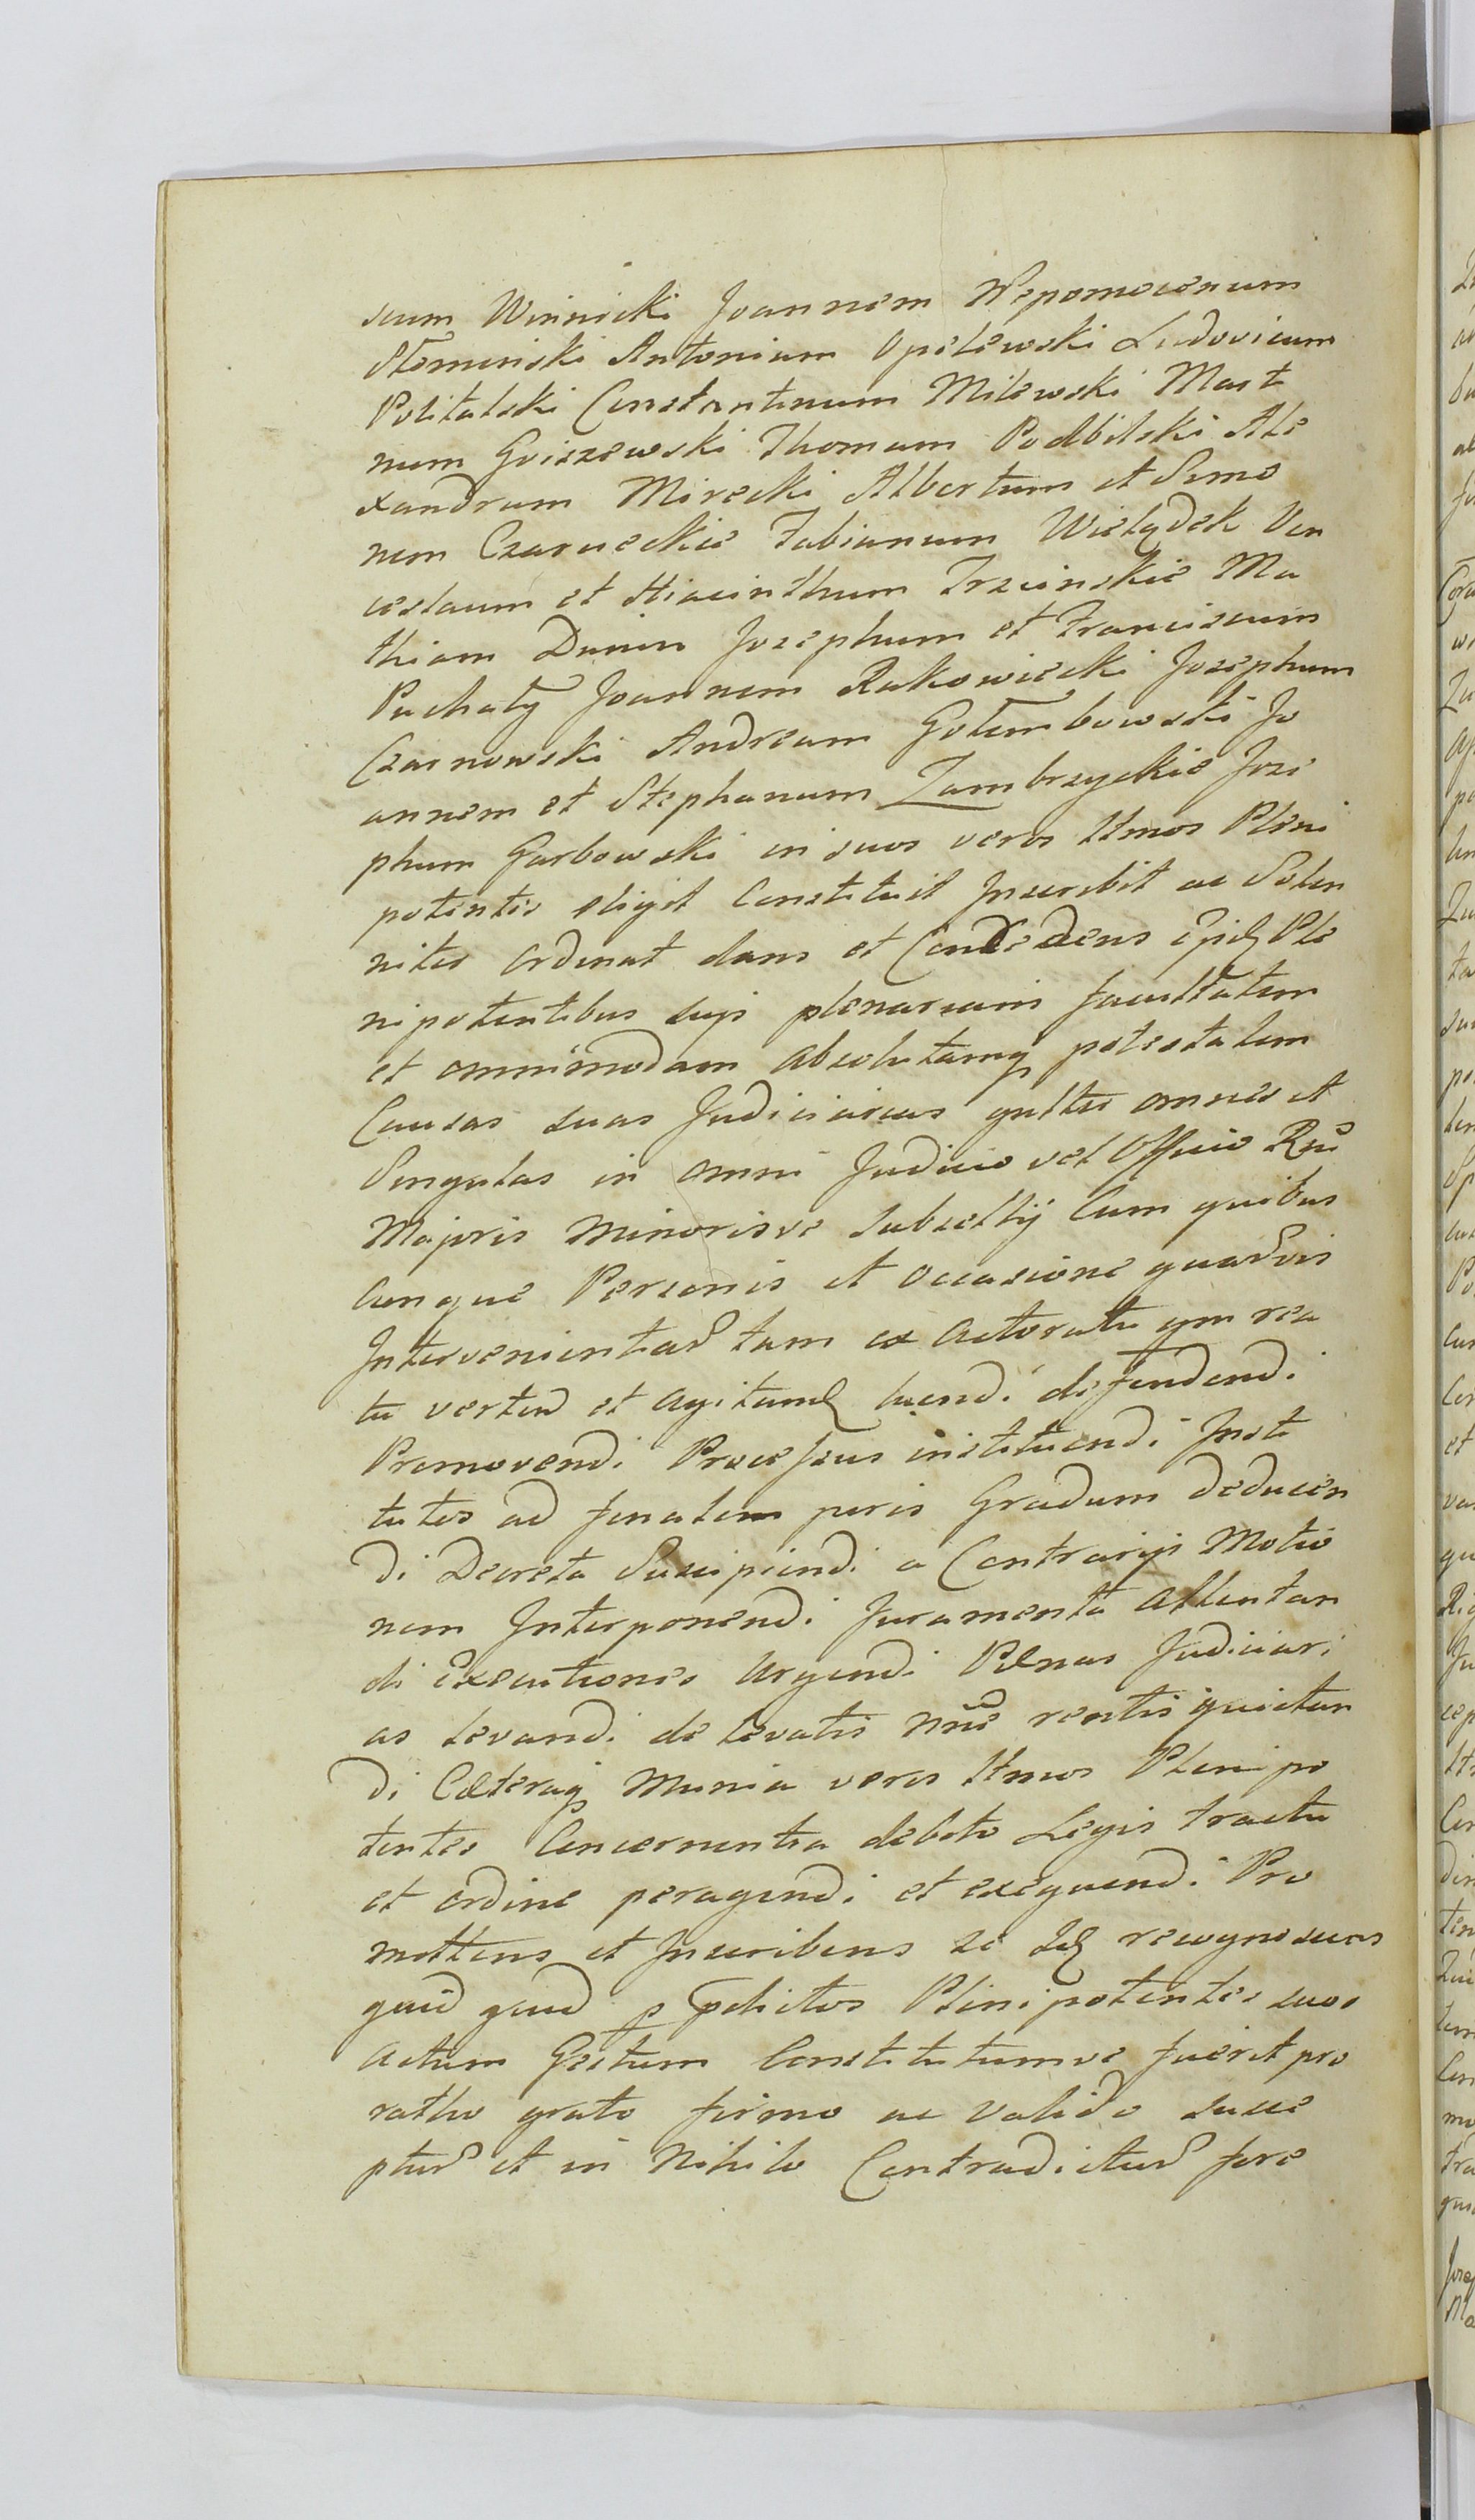 scum Winnicki Joannem Nepomocenum
Słomiński Antonium Opelewski Ludovicum
Politalski Constantinum Milewski Mart
num Goiszewski Thomam Podbilski Ale
xandrum Mirecki Albertum et Simo
nem Czarneckie Fabianum Wielądek Ven
ceslaum et Hiacinthum Trzcinskie Ma
thiam Dunin Josephum et Franciscum
Puchały Joannem Rakowiecki Josephum
Czarnowski Andream Gołembowski Jo
annem et Stephanum Zambrzyckie Jose
phum Garbowski in suos veros ltmos Pleni
potentes eligit Constituit Inscribit ac Solen
niter Ordinat dans et Concedens Ple
nipotentibus suis plenariam facultatem
et omnimodam absolutamq potestatem
Causas suas Judiciarias gnltes omnes et
Singulas in omni Judicio vel Officio Rni
Majoris Minorisve Subsellij Cum quibus
Cunque Personis et occasione quarvis
Intervenientiar tam ex actoratu qm rea
tu verten et agitand tuendi deffendendi
Promovendi Processus instituendi Insti
tutos ad finalem juris Gradum deducen
di Decreta Suscipiendi a Contrarijs Motio
nem Interponendi Juramenta attentan
di Executiones Urgendi Pœnas Judiciari
as levandi de levatis nne rentis quietan
di Cæteraq Munia veros ltmos Plenipo
tentes Concernentia debito Legis tractu
et ordine peragendi et exequendi Pro
mittens et Inscribens se Id recognoscens
quid quid p pdictos Plenipotentes suos
actum Gestum Constitutumve fuerit pro
ratho grato firmo ac valido susce
ptur et in Nihilo Contradictur fore